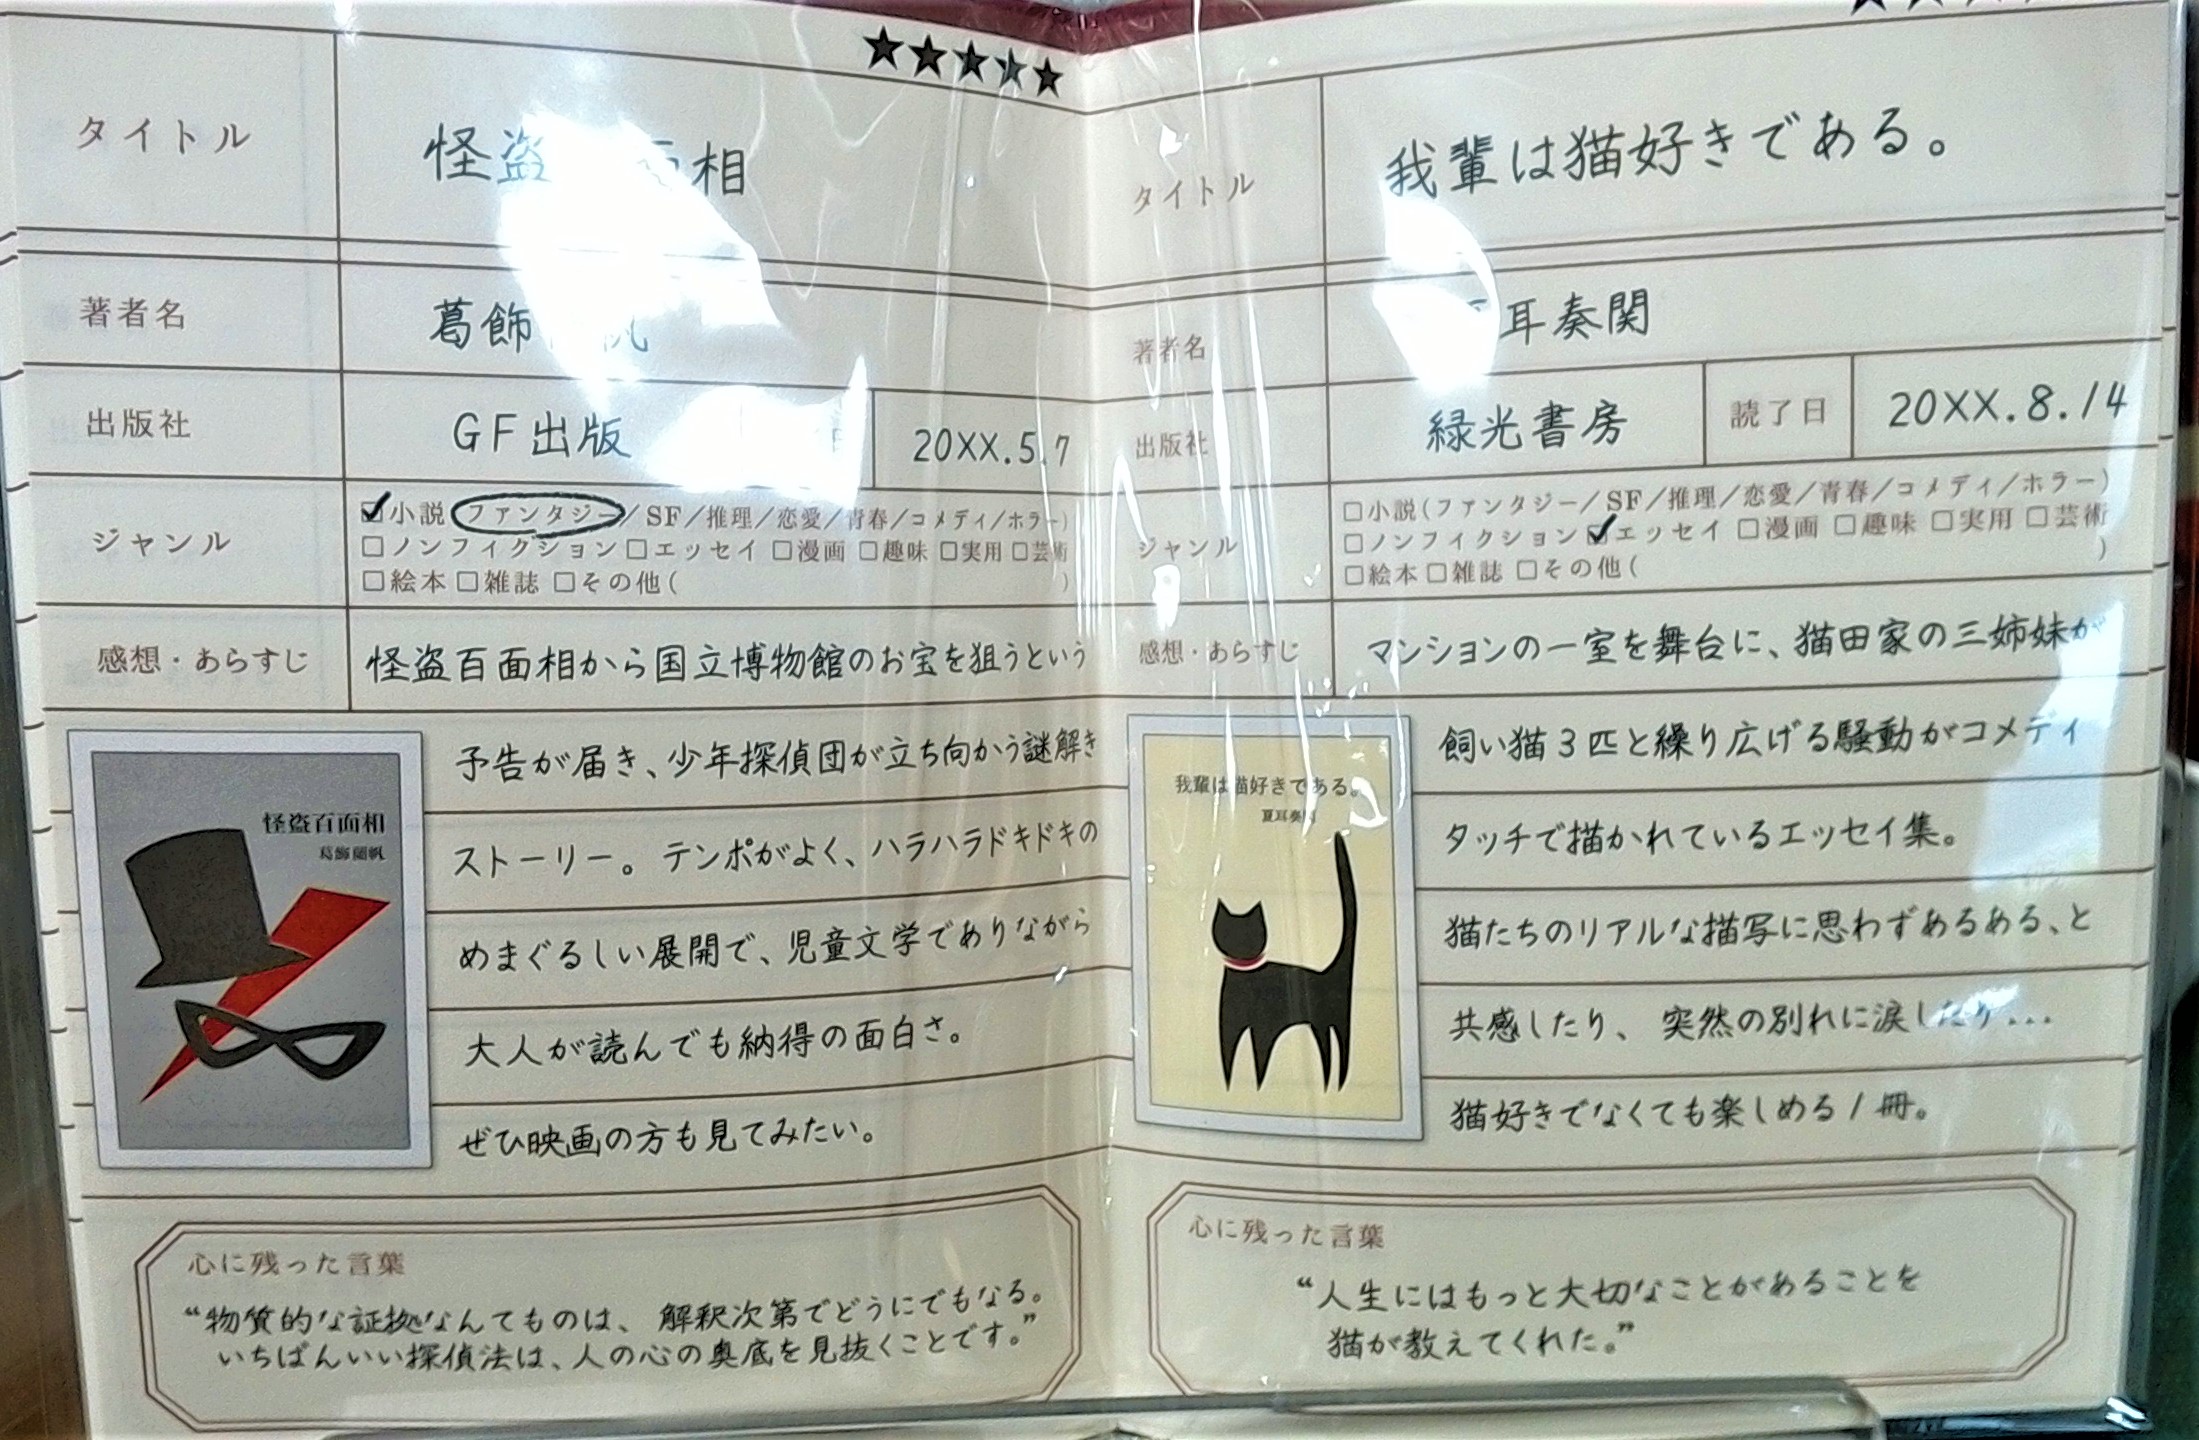 ★★★★★
タイトル
怪盗 面相
著者名
葛飾 帆
出版社
GF出版
20XX.5.7
ジャンル
☑小説(ファンタジー/SF/推理/恋愛/青春/コメディ/ホラー)
□ノンフィクション □エッセイ □漫画 □趣味 □実用 □芸術
□絵本 □雑誌 □その他( )
感想・あらすじ
怪盗百面相から国立博物館のお宝を狙うという
予告が届き、少年探偵団が立ち向かう謎解き
ストーリー。テンポがよく、ハラハラドキドキの
めまぐるしい展開で、児童文学でありながら
大人が読んでも納得の面白さ。
ぜひ映画の方も見てみたい。
怪盗百面相
葛飾蘭帆
心に残った言葉
“物質的な証拠なんてものは、解釈次第でどうにでもなる。
いちばんいい探偵法は、人の心の奥底を見抜くことです。”
タイトル
我輩は猫好きである。
著者名
耳奏関
出版社
緑光書房
読了日
20XX.8.14
ジャンル
□小説(ファンタジー/SF/推理/恋愛/青春/コメディ/ホラー)
□ノンフィクション ☑エッセイ □漫画 □趣味 □実用 □芸術
□絵本 □雑誌 □その他( )
感想・あらすじ
マンションの一室を舞台に、猫田家の三姉妹が
飼い猫3匹と繰り広げる騒動がコメディ
タッチで描かれているエッセイ集。
猫たちのリアルな描写に思わずあるある、と
共感したり、突然の別れに涙したり...
猫好きでなくても楽しめる1冊。
我輩は猫好きである。
夏耳奏関
心に残った言葉
“人生にはもっと大切なことがあることを
猫が教えてくれた。”